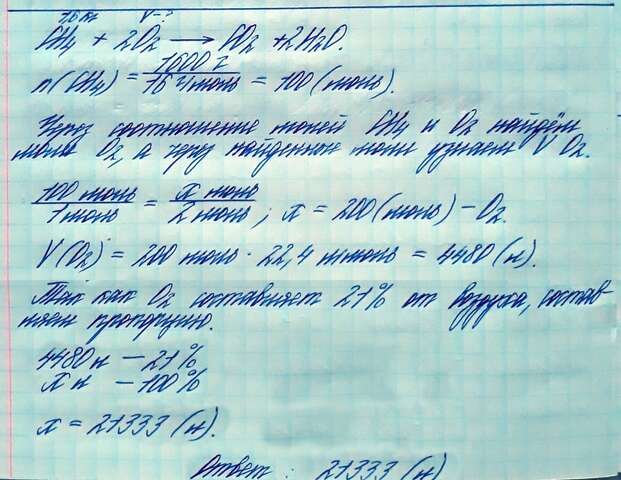 1,6 кг V-?
CH4 + 2O2 → CO2 + 2H2O.
n(CH4) = 1600 г / 16 г/моль = 100 (моль).
Через соотношение молей CH4 и O2 найдём
моли O2, а через найденные моли узнаем V O2.
100 моль / 1 моль = x моль / 2 моль ; x = 200 (моль) - O2.
V(O2) = 200 моль · 22,4 л/моль = 4480 (л).
Так как O2 составляет 21% от воздуха, состав-
ляем пропорцию.
4480 л - 21%
x л - 100%
x = 21333 (л).
Ответ: 21333 (л)